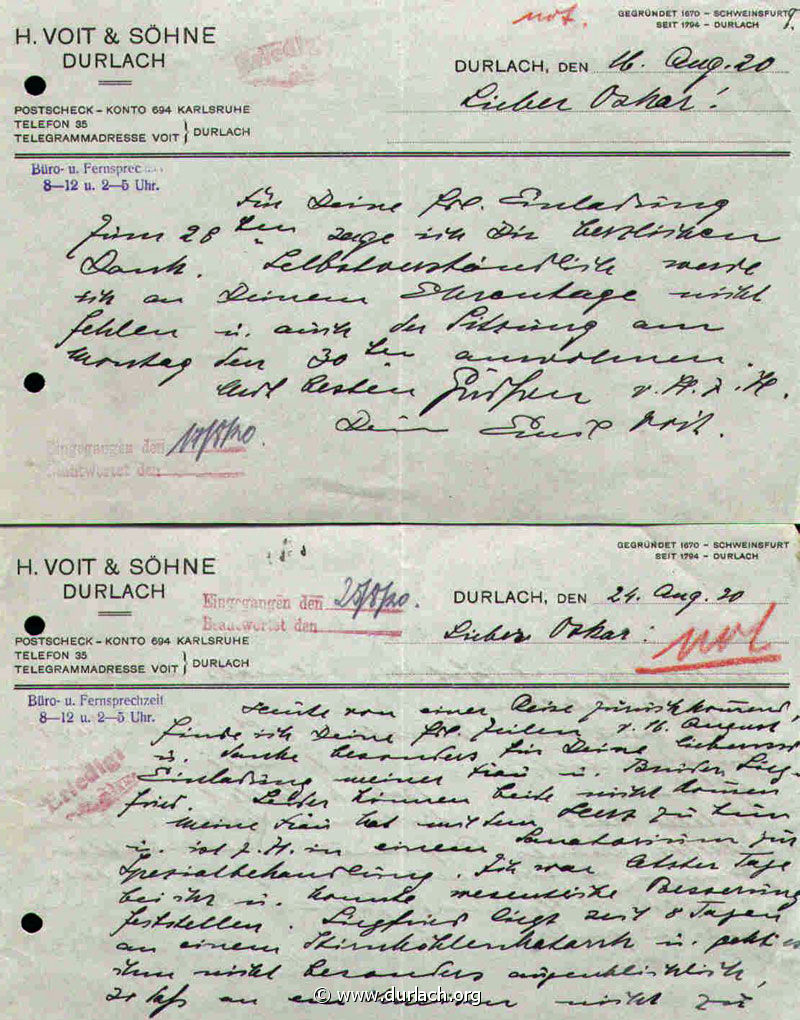 not.
GEGRÜNDET 1670 – SCHWEINSFURT
SEIT 1794 – DURLACH
H. VOIT & SÖHNE
DURLACH
Erledigt
DURLACH, DEN 16. Aug. 20
Lieber Oskar!
POSTSCHECK – KONTO 694 KARLSRUHE
TELEFON 35
TELEGRAMMADRESSE VOIT } DURLACH
Büro- u. Fernsprec
8–12 u. 2–5 Uhr.
Für Deine frdl. Einladung
zum 28ten sage ich Dir herzlichen
Dank. Selbstverständlich werde
ich an Deinem Ehrentage nicht
fehlen u. auch der Sitzung am
Montag den 30ten anwohnen.
Mit besten Grüßen v. H. z. H.
Dein Emil Voit.
Eingegangen den 17/8/20.
Beantwortet den
GEGRÜNDET 1670 – SCHWEINSFURT
SEIT 1794 – DURLACH
H. VOIT & SÖHNE
DURLACH
Eingegangen den 25/8/20.
Beantwortet den
DURLACH, DEN 24. Aug. 20
Lieber Oskar!
not
POSTSCHECK – KONTO 694 KARLSRUHE
TELEFON 35
TELEGRAMMADRESSE VOIT } DURLACH
Büro- u. Fernsprechzeit
8–12 u. 2–5 Uhr.
Erledigt
Heute von einer Reise zurückkommend,
finde ich Deine frdl. Zeilen v. 16. August
u. danke besonders für Deine liebensw.
Einladung meiner Frau u. Bruder Sieg-
fried. Leider können beide nicht kommen
Meine Frau hat mit dem Herz zu tun
u. ist z. Zt. in einem Sanatorium zur
Spezialbehandlung. Ich war letzter Tage
bei ihr u. konnte wesentliche Besserung
feststellen. Siegfried liegt seit 8 Tagen
an einem Stirnhöhlenkatarrh u. geht es
ihm nicht besonders augenblicklich,
so daß an ein nicht zu
© www.durlach.org